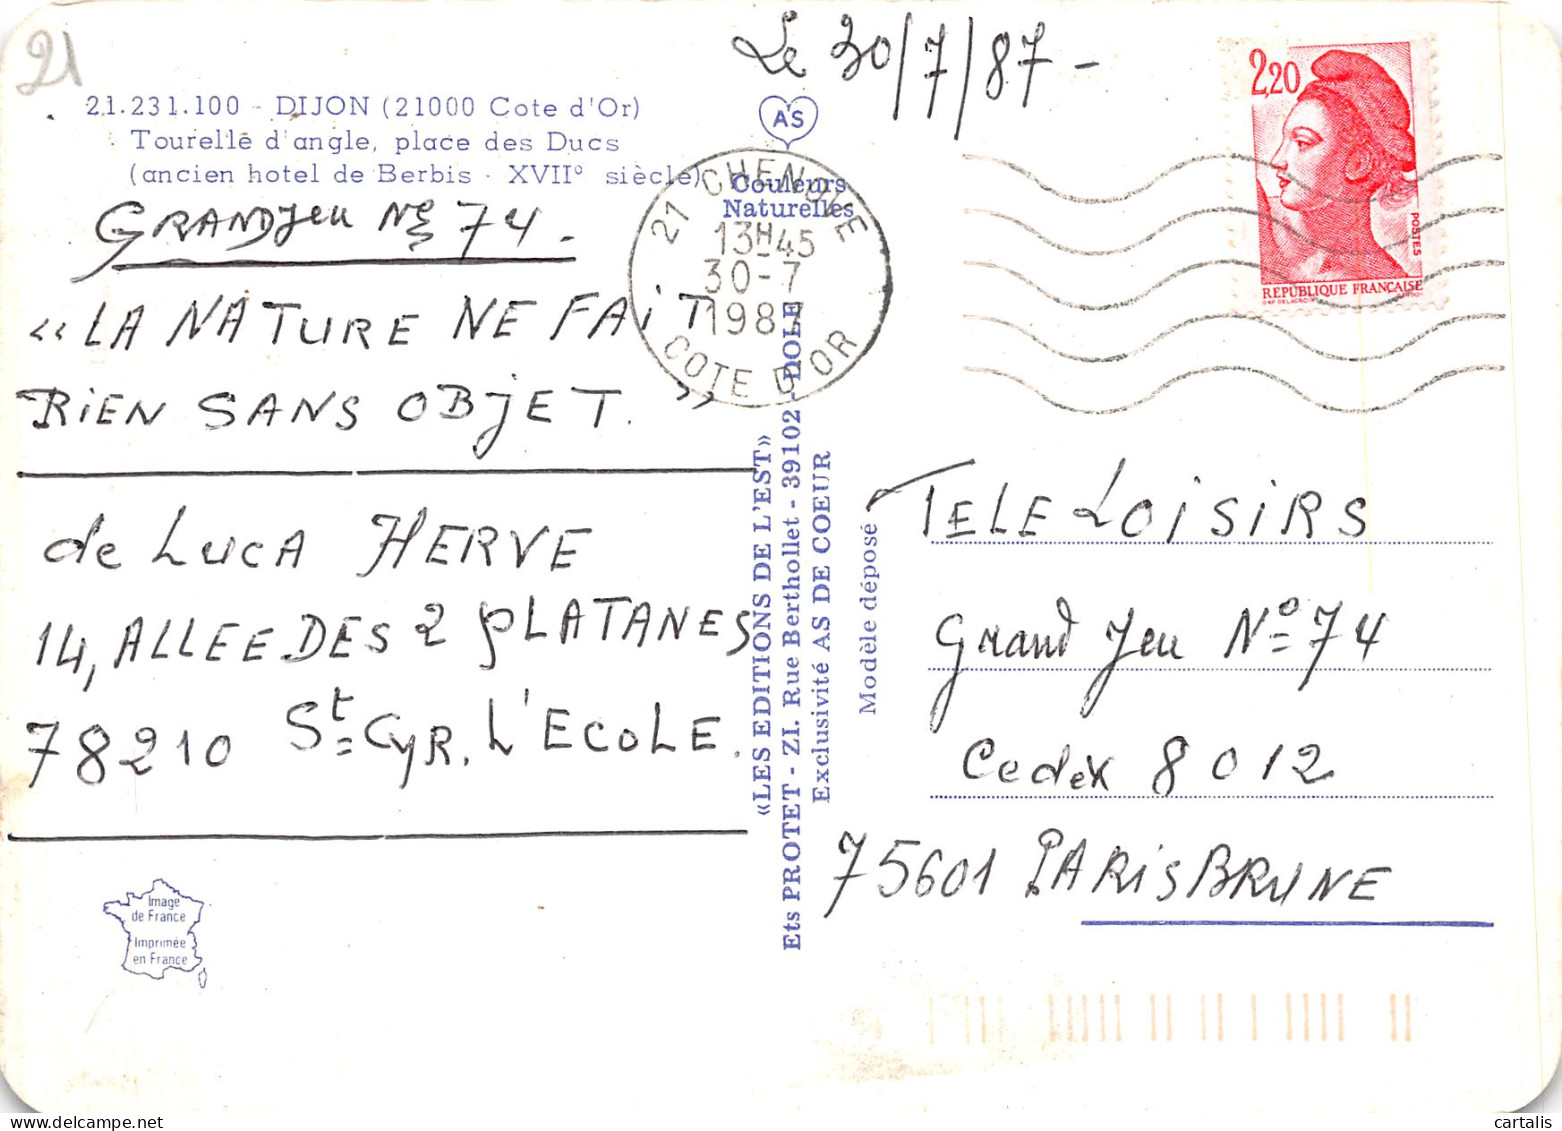 21
Le 30/7/87 -
21.231.100 - DIJON (21000 Cote d'Or)
Tourelle d'angle, place des Ducs
(ancien hotel de Berbis - XVII° siècle)
AS
Couleurs
Naturelles
21 CHENOVE
13H45
30-7
1987
COTE D'OR
2,20
POSTES
REPUBLIQUE FRANÇAISE
GRANDJeu No 74.
« LA NATURE NE FAiT
RiEN SANS OBJET. »
de LUCA HERVE
14, ALLEE DES 2 PLATANES
78210 St CYR. L'ECOLE.
«LES EDITIONS DE L'EST»
Ets PROTET - ZI. Rue Berthollet - 39102 - DOLE
Exclusivité AS DE COEUR
Modèle déposé
TELE LOiSiRS
Grand Jeu No 74
Cedex 8012
75601 PARiS BRUNE
Image
de France
Imprimée
en France
cartalis